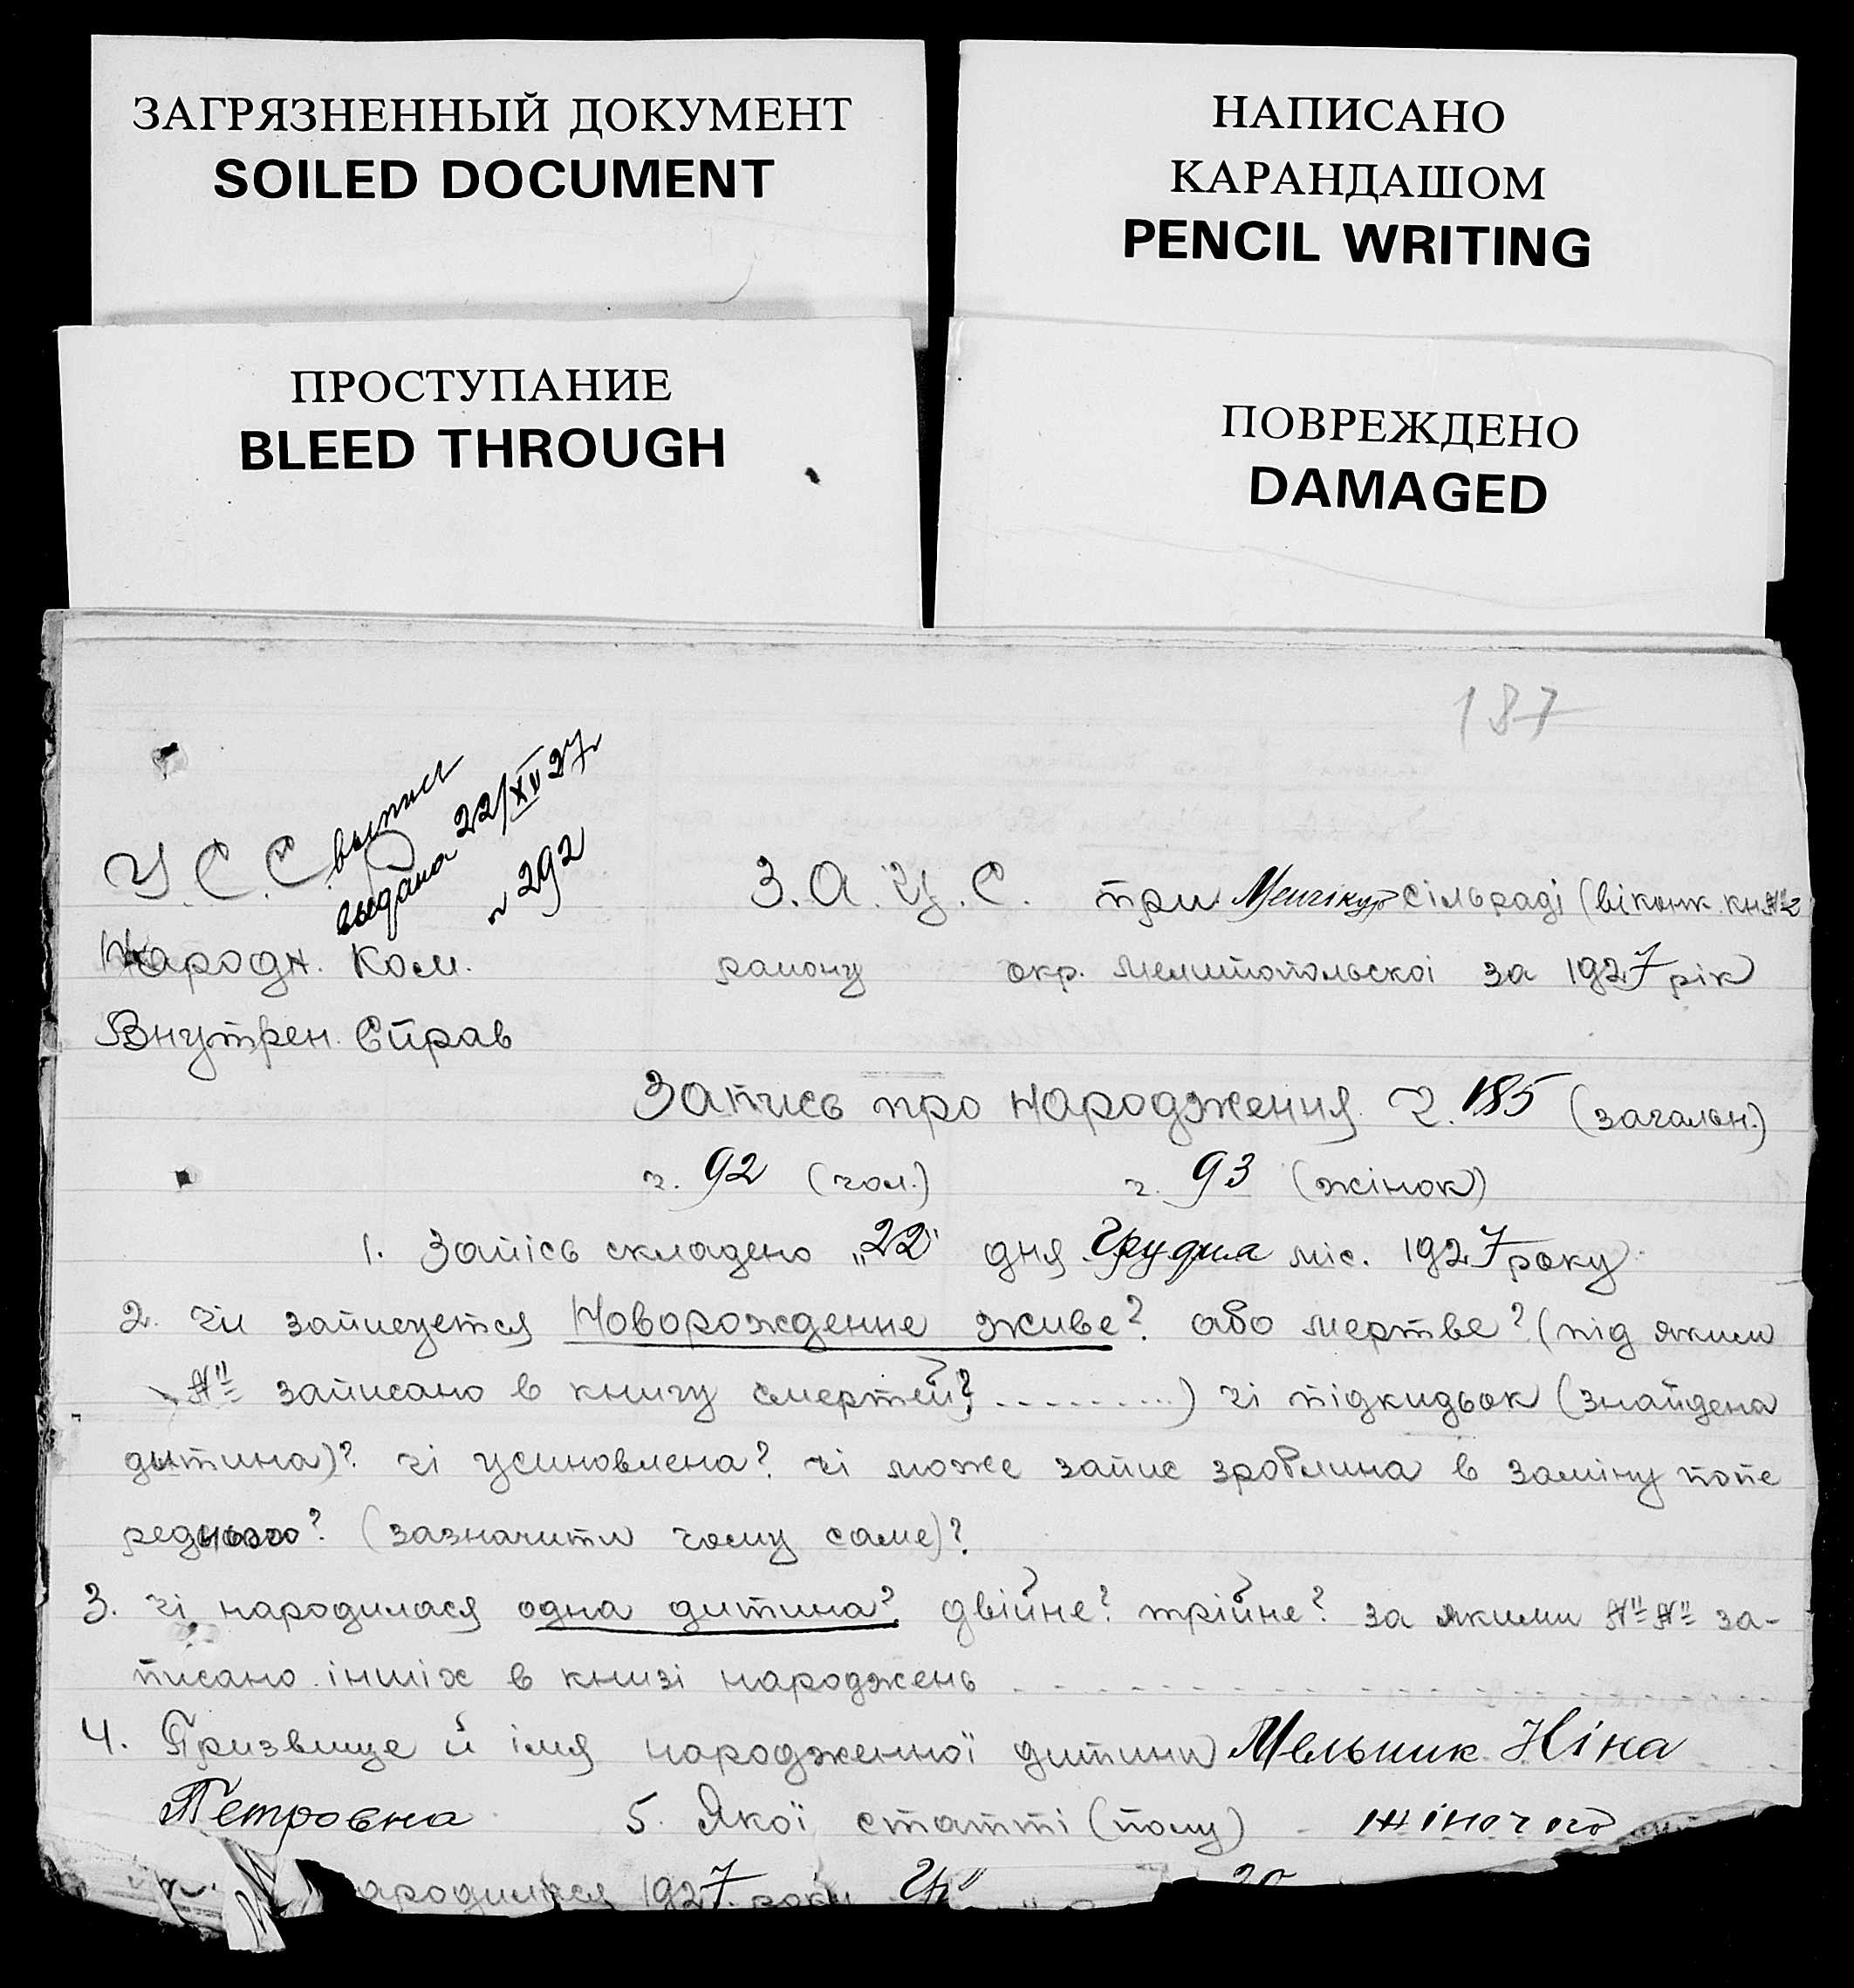 ЗАГРЯЗНЕННЫЙ ДОКУМЕНТ
SOILED DOCUMENT
НАПИСАНО
КАРАНДАШОМ
PENCIL WRITING
ПРОСТУПАНИЕ
BLEED THROUGH
ПОВРЕЖДЕНО
DAMAGED
187
выпись
выдана 22/XII 27
292
У. С. С.
Народн. Ком.
Внутрен. Справ
З. А. Ц. С. при Менчікур сільраді (віконк. кн №2
району окр. Мелитопольскоі за 1927 рік
Запись про народження ч. 185 (загальн.)
ч. 92 (чол.) ч. 93 (жінок)
1. Запісь складено „22" дня Грудня міс. 1927 року
2. Чи записуется Новорожденне живе? або мертве? (під яким
№ записано в книгу смертей? .........) чі підкидьок (знайдена
дитина)? чі усиновлена? чі може запис зроблина в заміну попе
реднього? (зазначити чому саме)?
3. чі народилася одна дитина? двійне? трійне? за якими №№ за-
писано інших в книзі народжень
4. Призвище й імя народженної дитини Мельник Ніна
Петровна 5. Якої статті (полу) жіночого
ародилася 1927 року